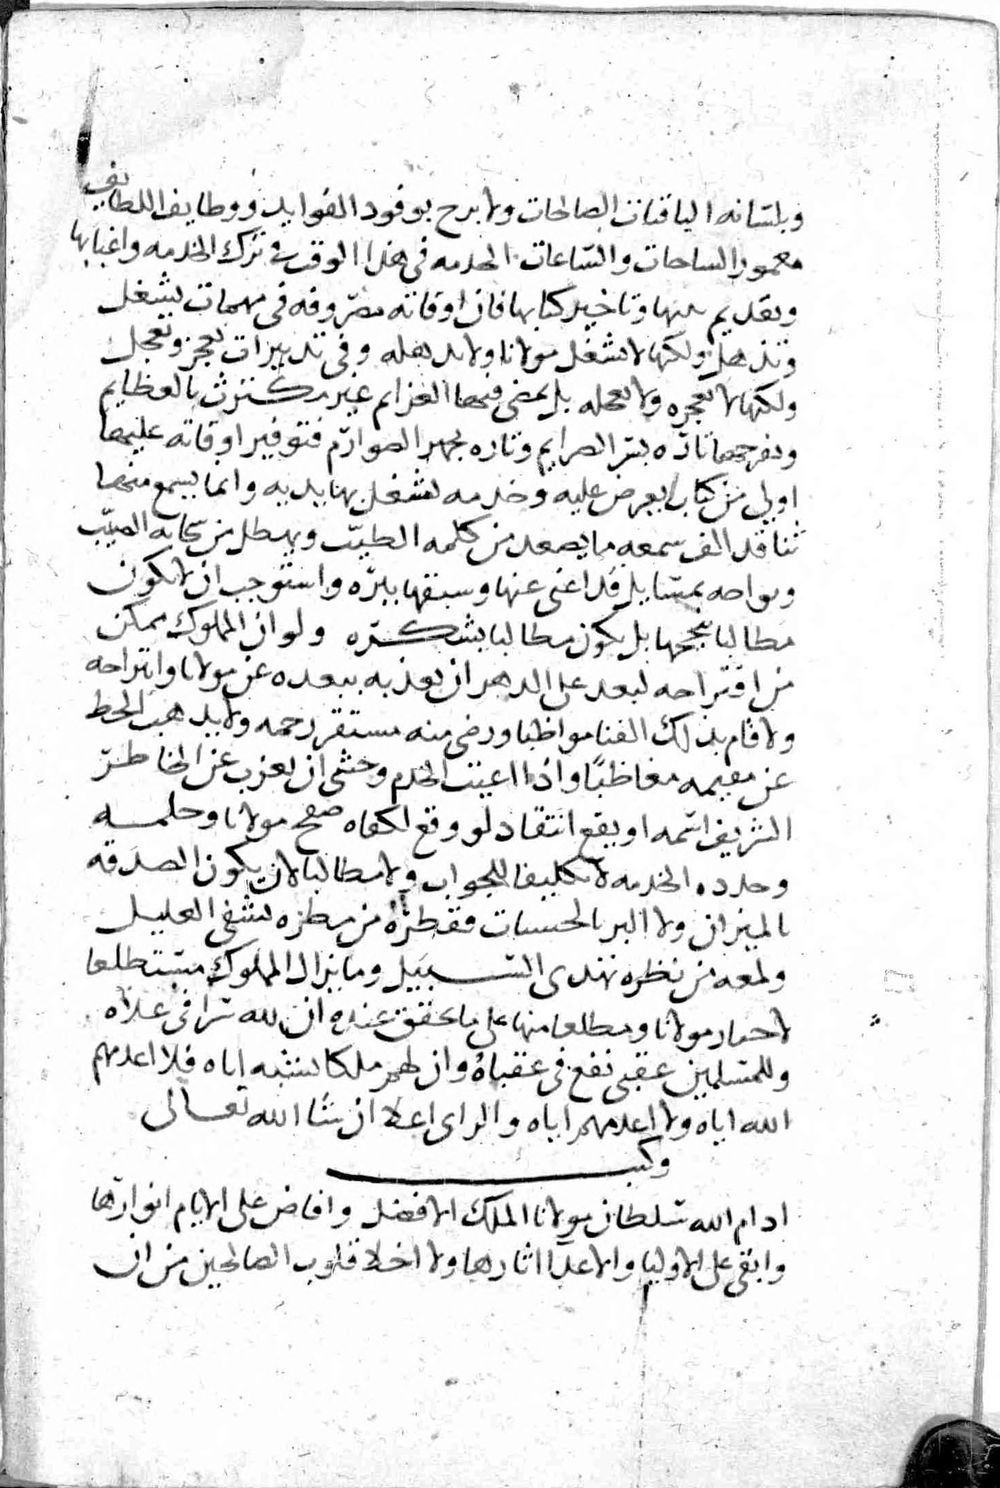 وبلسانه الباقيات الصالحات ولا برح بوفود الفوايد ووظايف اللطايف
معمور الساحات والساعات الخدمه في هذا الوقت في ترك الخدمه واغبابها
وتقديم منها وتاخير كتابها فان اوقاته مصروفه في مهمات يشغل
وتذهل ولكنها لا تشغل مولانا ولا تذهله وفي تدبيرات تعجز وتعجل
ولكنها لا تعجزه ولا تعجله بل يمضي فيها العزايم غير مكترث بالعظايم
ويفرجها تاره بسر الصرايم وتاره بجهر الصوارم فتوفير اوقاته عليها
اولي من كتاب يعرض عليه وخدمه تشغل بها يديه وانما يسمع منها
ثنا قد الف سمعه ما يصعد من كلمه الطيب ويهطل من سحابه الصيب
ويواجه بمسايل قد اغنى عنها وسبقها ببره واستوجب ان لا يكون
مطالبا بنجحها بل يكون مطالبا بشكره ولو ان المملوك ممكن
من اقتراحه لبعد على الدهر ان يعذبه ببعده عن مولانا وانتزاحه
ولاقام بذلك الفنا مواظبا ورضي منه مستقر رحمه ولا يذهب الحظ
عن مقيمه مغاظبًا واذا اغبت الخدم وخشي ان يعزب عن الخاطر
الشريف اسمه او يقع انتقاد لو وقع لكفاه صفح مولانا وحلمه
وجدده الخدمه لا تكليفا للجواب ولا مطالبا لان يكون الصدقه
بالميزان ولا البر بالحسبان فقطرة من مطره تشفي العليل
ولمعه من نظره تهدي السبيل وما يزال المملوك مستطلعا
لاخبار مولانا ومطلعا منها على ما تحقق عنده ان لله سرا في علاه
وللمسلمين عقبى نفع في عقباه وان لهم ملكا ننشيه اياه فلا اعدمهم
الله اياه ولا اعدمهم اياه والراي اعلا ان شا الله تعالى
وكتب
ادام الله سلطان مولانا الملك الافضل وافاض على الايام انوارها
وابقى على الاوليا والاعدا اثارها ولا اخلا قلوب الصالحين من ان